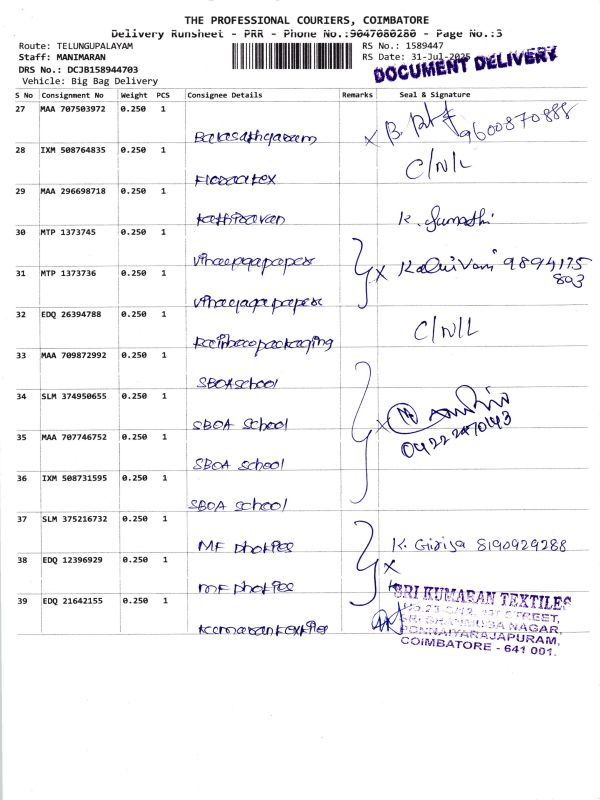 THE PROFESSIONAL COURIERS, COIMBATORE
Delivery Runsheet - PRR - Phone No.:9047080280 - Page No.:3
Route: TELUNGUPALAYAM RS No.: 1589447
Staff: MANIMARAN RS Date: 31-Jul-2025
DRS No.: DCJB158944703
Vehicle: Big Bag Delivery
DOCUMENT DELIVERY
S No Consignment No Weight PCS Consignee Details Remarks Seal & Signature
27 MAA 707503972 0.250 1
x 9600870888
28 IXM 508764835 0.250 1
C/N/L
29 MAA 296698718 0.250 1
Kathiravan K. Sumathi
30 MTP 1373745 0.250 1
31 MTP 1373736 0.250 1
x Kalaivani 9894175
803
32 EDQ 26394788 0.250 1
C/N/L
33 MAA 709872992 0.250 1
SBOA School
34 SLM 374950655 0.250 1
SBOA School
x
04222470143
35 MAA 707746752 0.250 1
SBOA School
36 IXM 508731595 0.250 1
SBOA School
37 SLM 375216732 0.250 1
MF K. Girija 8190929288
38 EDQ 12396929 0.250 1
x
MF
39 EDQ 21642155 0.250 1
Kumaran textiles
SRI KUMARAN TEXTILES
STREET,
SRI SHANMUGA NAGAR,
PONNAIYARAJAPURAM,
COIMBATORE - 641 001.